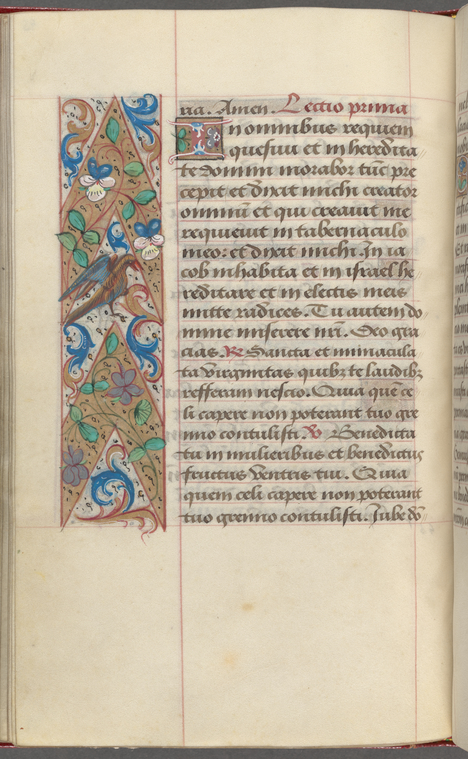 ria. Amen. Lectio prima
In omnibus requiem
quesiui et in heredita
te domini morabor tūc pre
cepit et dixit michi creator
omniū et qui creauit me
requieuit in tabernaculo
meo: et dixit michi In ia
cob inhabita et in israel he
reditare et in electis meis
mitte radices. Tu autem do
mine miserere nr̄i. Deo gra
cias. R̷ Sancta et immacula
ta virginitas quibꝫ te laudibꝫ
refferam nescio. Quia quē ce
li capere non poterant tuo gre
mio contulisti. V̷ Benedicta
tu in mulieribus et benedictus
fructus ventris tui. Quia
quem celi capere non poterant
tuo gremio contulisti. Iube dō